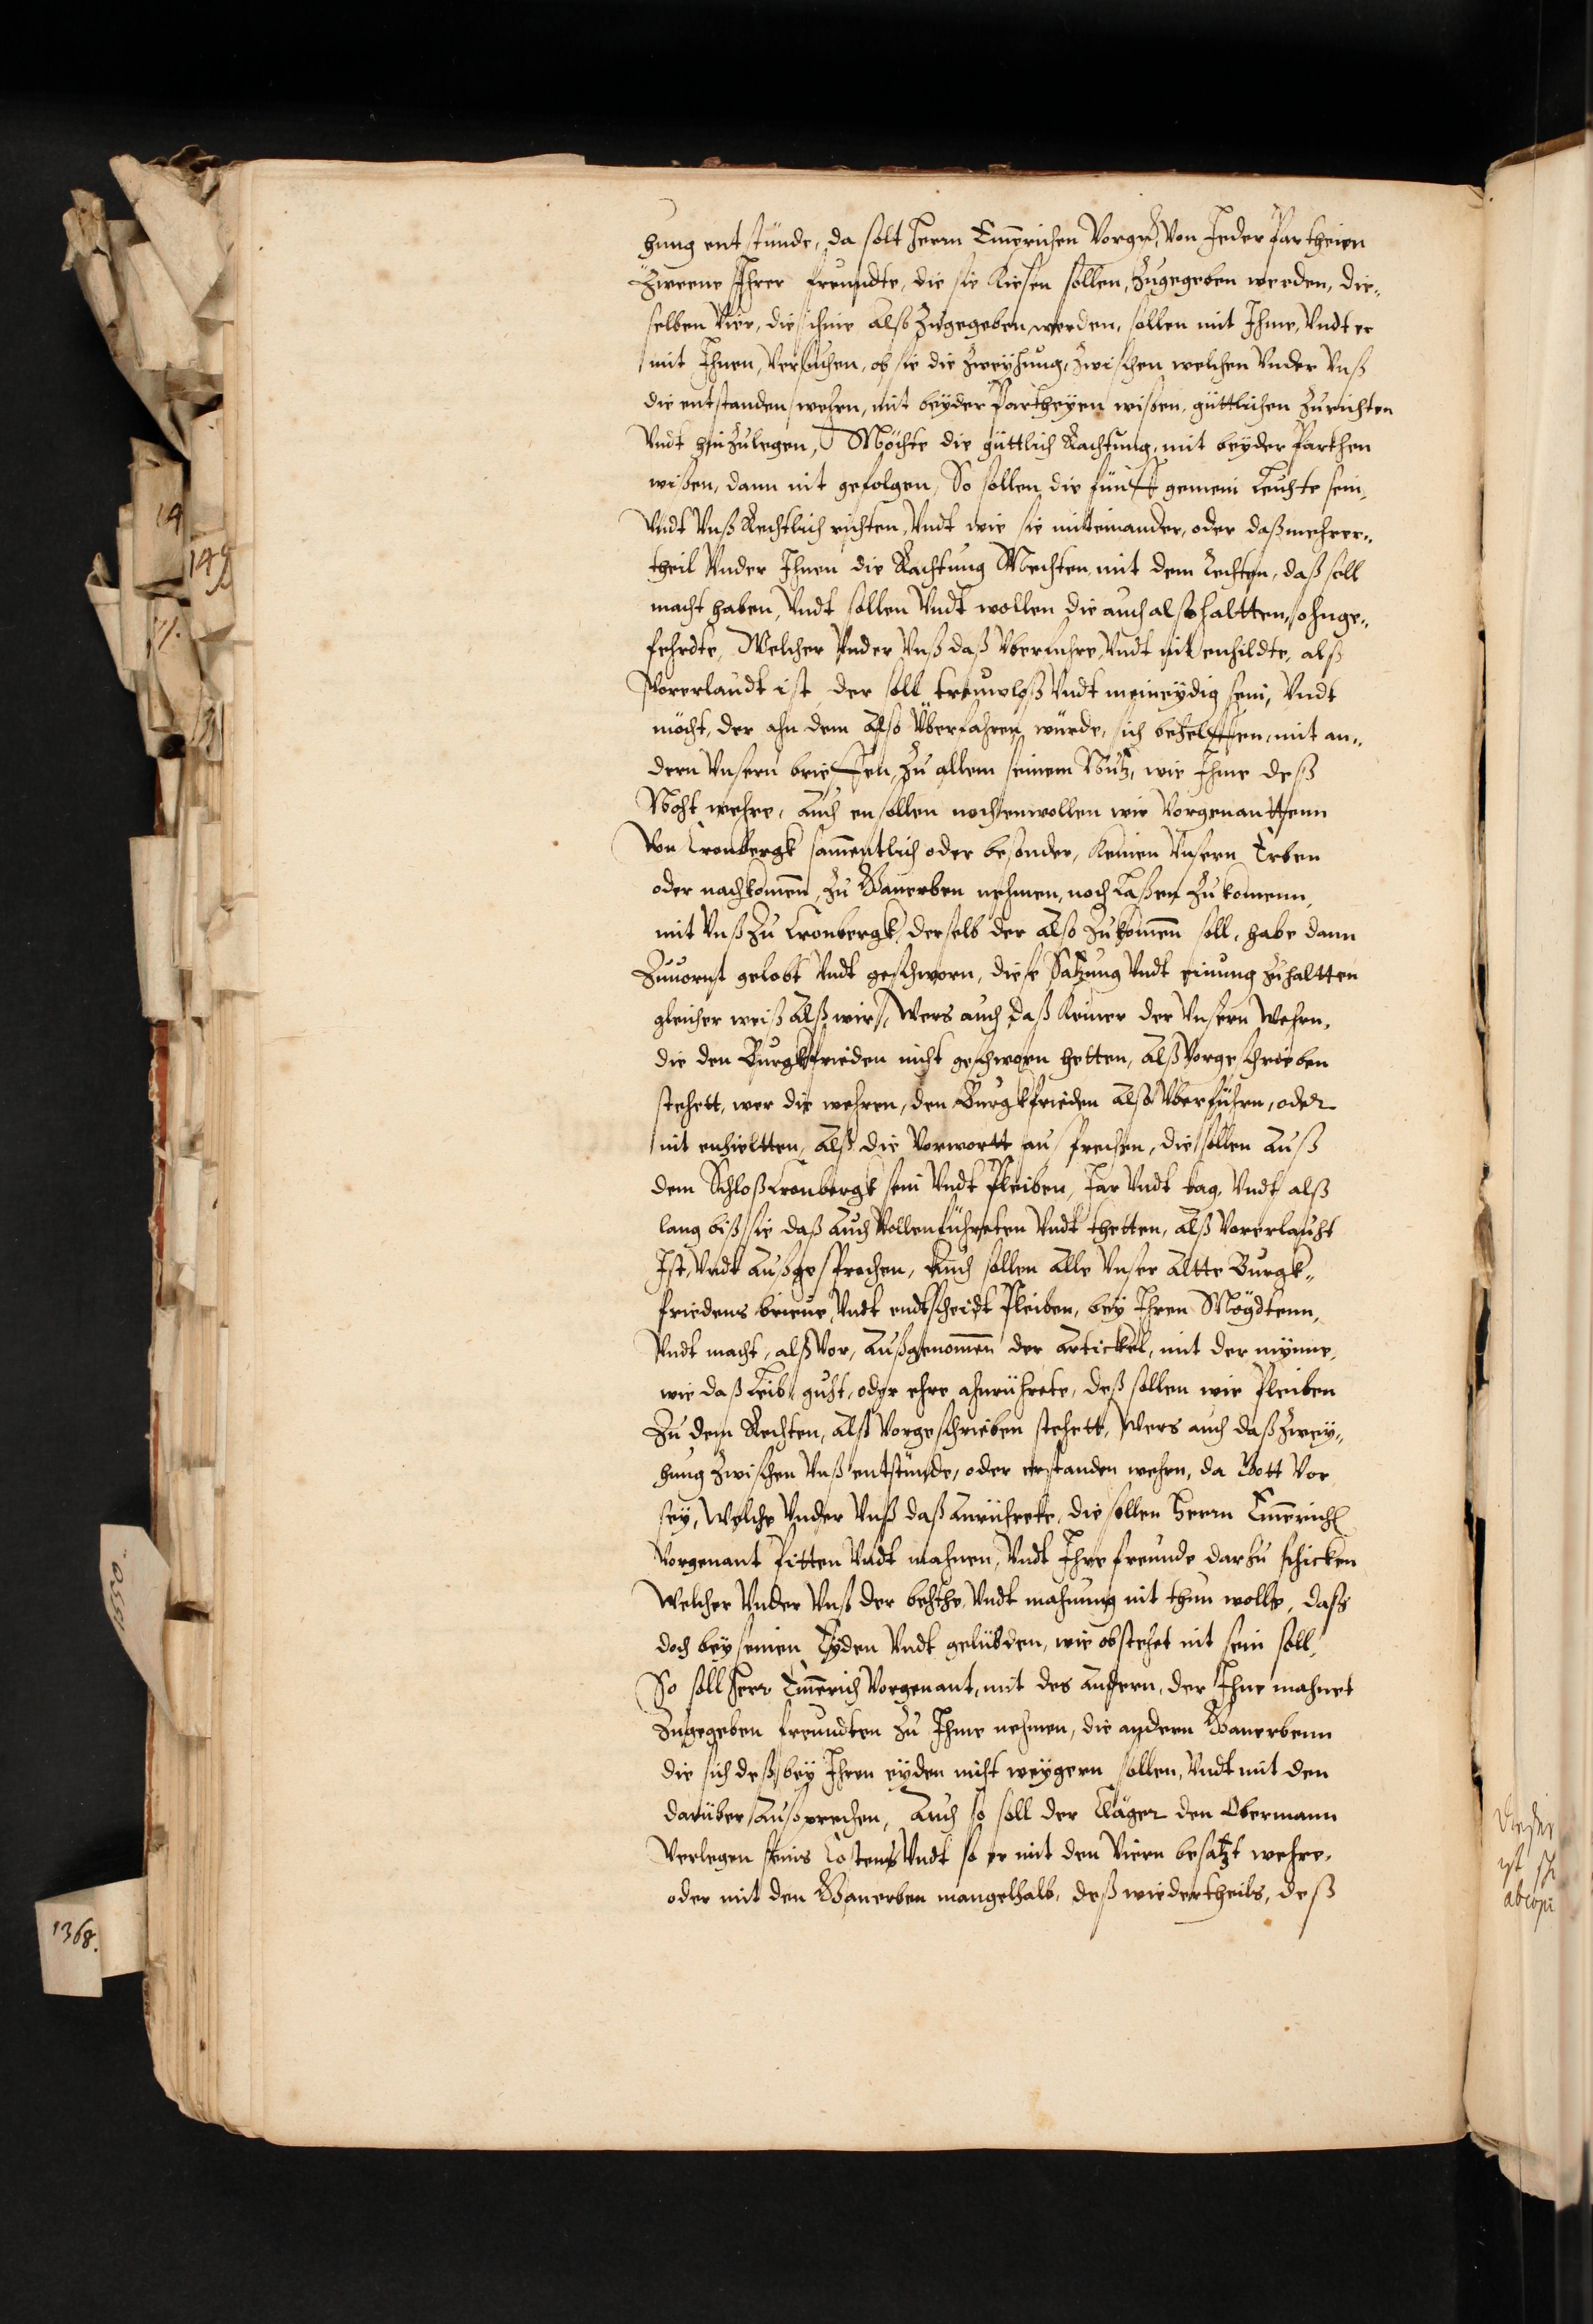 hung entstünde, da solt Herrn Emerichen Vorgen, Von Jeder Partheien
Zweene Ihrer freundte, die sie kiesen sollen, Zugegeben werden, die„
selben Vier, die ihme also Zugegeben werden, sollen mit Ihme, Vndt er
mit Ihnen, Versuchen, ob sie die Zweyhung, Zwischen welchen Vnder Vnß
die entstanden wehrn, mit beyder Partheyen wißen, güttlichen Zurichten
Vndt hinzulegen, Möchte die güttlich Rachtung, mit beyder Parthen
wißen, dann nit gefolgen, So sollen die fünff gemein Leuhte sein,
Vndt Vnß Rechtlich richten, Vndt wie sie miteinander, oder daß mehrer„
theil Vnder Ihnen die Rachtung Mechten, mit dem Rechten, daß soll
macht haben, Vndt sollen Vndt wollen die auch also haltten, ohnge„
fehrdte, Welcher Vnder Vnß daß Vberfuhre, Vndt nit enhildte, alß
Vorerlaudt ist, der soll treuwloß Vndt meineydig sein, Vndt
möcht, der ahn dem Also Überfahren würde, sich behelffen, mit an„
dern Vnsern brieffen, Zu allem seinem Nutz, wie Ihme deß
Noht wehre, Auch ensollen noch enwollen wir Vorgenanttenn
Von Cronbergk sammentlich oder besonder, Keinen Vnsern Erben
oder nachkomen, Zu Ganerben nehmen, noch Laßen Zukomenn,
mit Vnß Zu Cronbergk, derselb der Also Zukomen soll, habe dann
Zuuornt gelobt Vndt geschworn, diese Satzung Vndt einung Zuhaltten
gleicher weiß Alß wir, Wers auch daß Keiner der Vnsern Wehrn,
die den Burgkfrieden nicht geschworn hetten, Alß Vorgeschrieben
stehett, wer die wehren, den Burgkfrieden Also Vberführn, oder
nit enhieltten, Alß die Vorwortt außprechen, die sollen Auß
dem Schloß Cronbergk sein Vndt Pleiben, Jar Vndt tag, Vndt alß
lang biß sie daß Auch Vollenführeten Vndt thetten, Alß Vorerlauht
Ist, Vndt Außgesprochen, Auch sollen Alle Vnser Altte Burgk„
friedens brieue, Vndt endtscheidt Pleiben, bey Ihren Mögdtenn,
Vndt macht, alß Vor, Außgenomen der Artickel, mit der mynne,
wie daß Leib, guht, oder ehre ahnrührete, deß sollen wir Pleiben
Zu dem Rechten, Alß Vorgeschrieben stehett, Wers auch daß Zwey„
hung Zwischen Vnß entstünde, oder erstanden wehrn, da Gott Vor
sey, Welche Vnder Vnß daß Anrührete, die sollen Herrn Emerich
Vorgenant Pitten Vndt mahnen, Vndt Ihre freunde darzu schicken
Welcher Vnder Vnß der behthe, Vndt mahnung nit thun wolle, daß
doch bey seinen Eyden Vndt gelübden, wie obstehet nit sein soll,
So soll Herr Emerich Vorgenant, mit des Andern, der Ihne mahnet
Zugegeben freundten Zu Ihme nehmen, die andern Ganerbenn
die sich deß, bey Ihren eyden nicht weygern sollen, Vndt mit den
darüber Außprechen, Auch so soll der Cläger den Obermann
Verlegen seins Costens Vndt so er mit den Viern besatzt wehre,
oder mit den Ganerben mangelhalb, deß wiedertheils, deß
14
149
1550
1368.